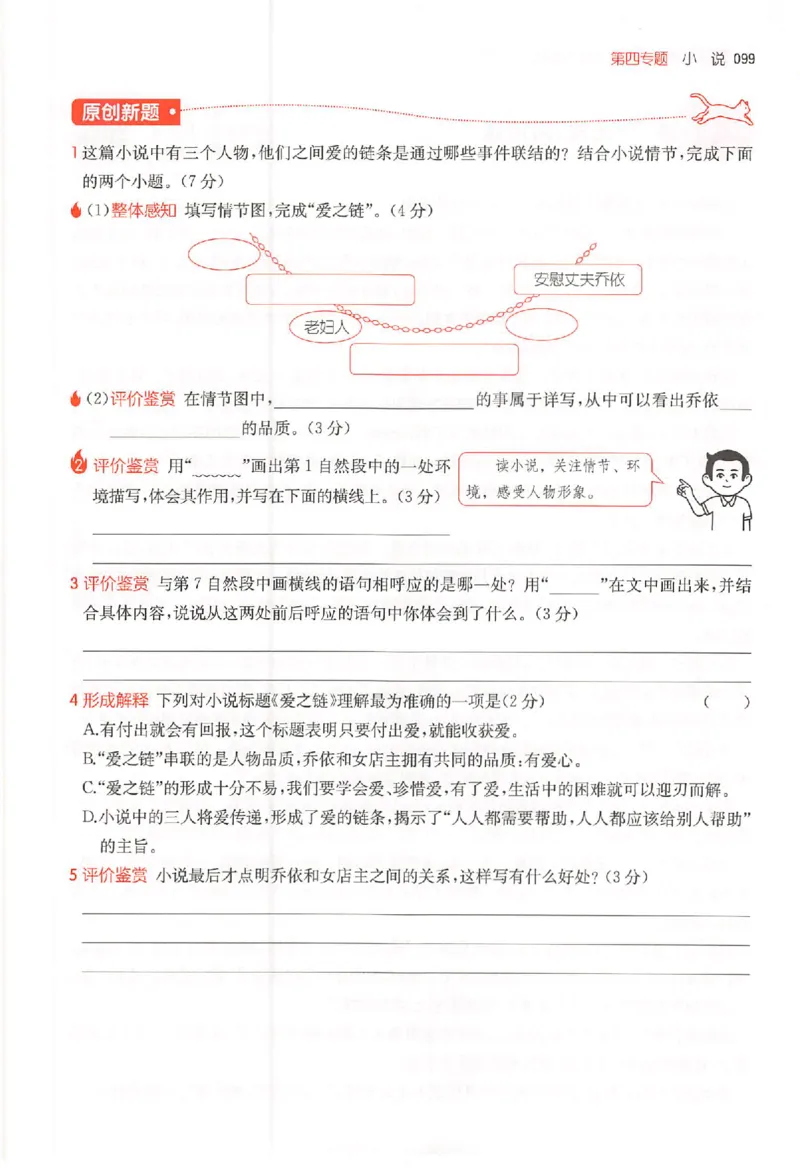 第四专题 小 说 099
原创新题
1 这篇小说中有三个人物,他们之间爱的链条是通过哪些事件联结的? 结合小说情节,完成下面
的两个小题。(7分)
(1)整体感知 填写情节图,完成“爱之链”。(4分)
安慰丈夫乔依
老妇人
(2)评价鉴赏 在情节图中,____________________的事属于详写,从中可以看出乔依____
______________的品质。(3分)
2 评价鉴赏 用“﹏﹏﹏”画出第1自然段中的一处环
境描写,体会其作用,并写在下面的横线上。(3分)
读小说,关注情节、环
境,感受人物形象。
3 评价鉴赏 与第7自然段中画横线的语句相呼应的是哪一处? 用“_____”在文中画出来,并结
合具体内容,说说从这两处前后呼应的语句中你体会到了什么。(3分)
4 形成解释 下列对小说标题《爱之链》理解最为准确的一项是(2分) ( )
A.有付出就会有回报,这个标题表明只要付出爱,就能收获爱。
B.“爱之链”串联的是人物品质,乔依和女店主拥有共同的品质:有爱心。
C.“爱之链”的形成十分不易,我们要学会爱、珍惜爱,有了爱,生活中的困难就可以迎刃而解。
D.小说中的三人将爱传递,形成了爱的链条,揭示了“人人都需要帮助,人人都应该给别人帮助”
的主旨。
5 评价鉴赏 小说最后才点明乔依和女店主之间的关系,这样写有什么好处? (3分)